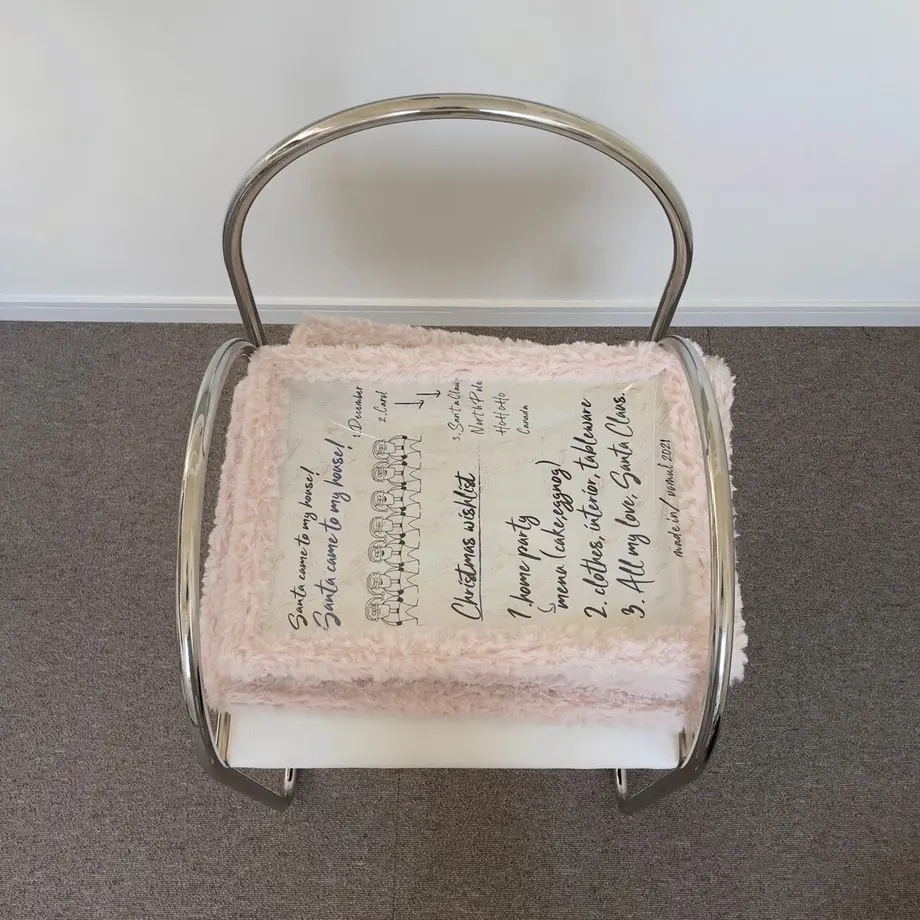 Santa came to my house!
Santa came to my house!
1. December
2. Carol
3. Santa Claus
North Pole
HoHoHo
Canada
Christmas wishlist
1. home party
menu (cake, eggnog)
2. clothes, interior, tableware
3. All my love, Santa Claus.
made in/ nomul 2021